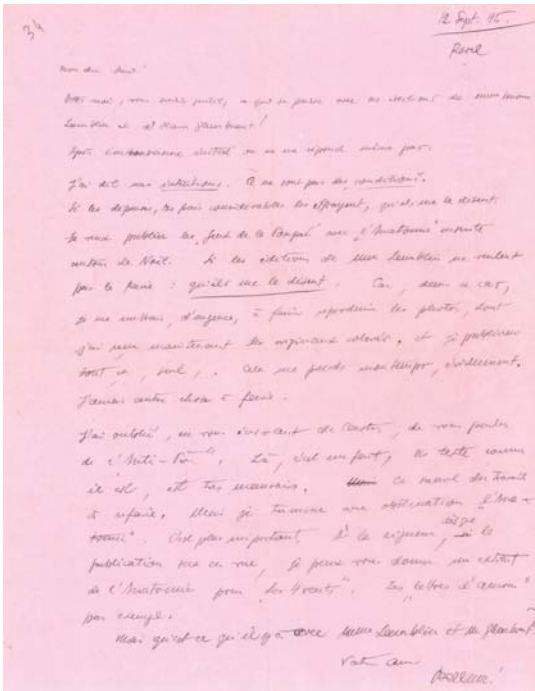 34
12 Sept. 45.
Paris
Mon cher ami
Dites moi, vous serez gentil, ce qui se passe avec les éditions de Madame
Lamblin et
Après l'enthousiasme initial on ne me répond même pas.
J'ai dit mes intentions. Ce ne sont pas des conditions.
Si les dépenses, les frais considérables les effrayent, qu'ils me le disent.
Je veux publier les Jeux de la Poupée avec "l'Anatomie" ensuite
autour de Noël. Si les éditions de Mme Lamblin ne veulent
pas le faire : qu'ils me le disent. Car, dans ce cas,
je me mettrais, d'urgence, à faire reproduire les photos, dont
j'ai maintenant les originaux coloriés, et je publierais
tout ça, seul,. Cela me prendra mon temps, évidemment.
J'aimerais autre chose à faire.
J'ai oublié, en vous écrivant de Castres, de vous parler
de l'Anti-. Là, c'est un fait, le texte comme
il est, est très mauvais. Ce travail
à refaire. Mais je termine avec obstination "l'Ana-
tomie". C'est plus important. À la rigueur, si la
publication, je peux vous donner un extrait
de l'Anatomie pour "Les 4 vents". Les "lettres d'amour"
par exemple.
Mais qu'est ce qu'il y a avec Mme Lamblin et
Votre ami
Bellmer